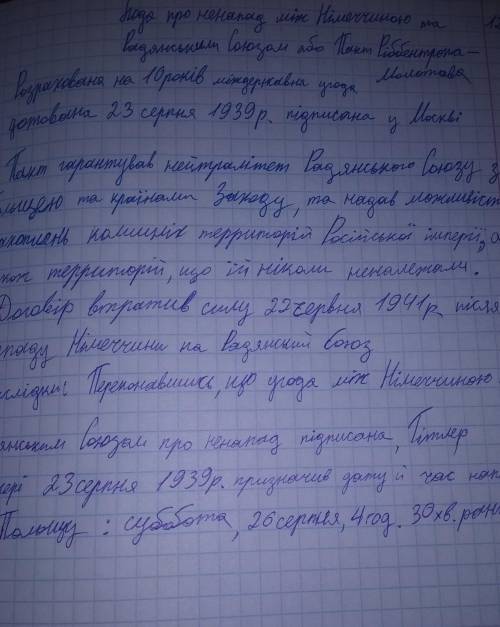 года про ненапад між Німеччиною та
Радянським Союзом або Пакт Ріббентропа–
Молотова
Розрахована на 10 років міждержавна угода
датована 23 серпня 1939 р. підписана у Москві
Пакт гарантував нейтралітет Радянського Союзу з
льщею та країнами Заходу, та надав можливіст
ахоплень колишніх территорій Російської імперії, а
кож территорій, що їй ніколи неналежали.
Договір втратив силу 22 червня 1941 р. після
паду Німеччини на Радянский Союз
слідки: Переконавшись, що угода між Німеччиною
янським Союзом про ненапад підписана, Гітлер
чері 23 серпня 1939 р. призначив дату й час нап
Польщу: суббота, 26 серпня, 4 год. 30 хв. ран